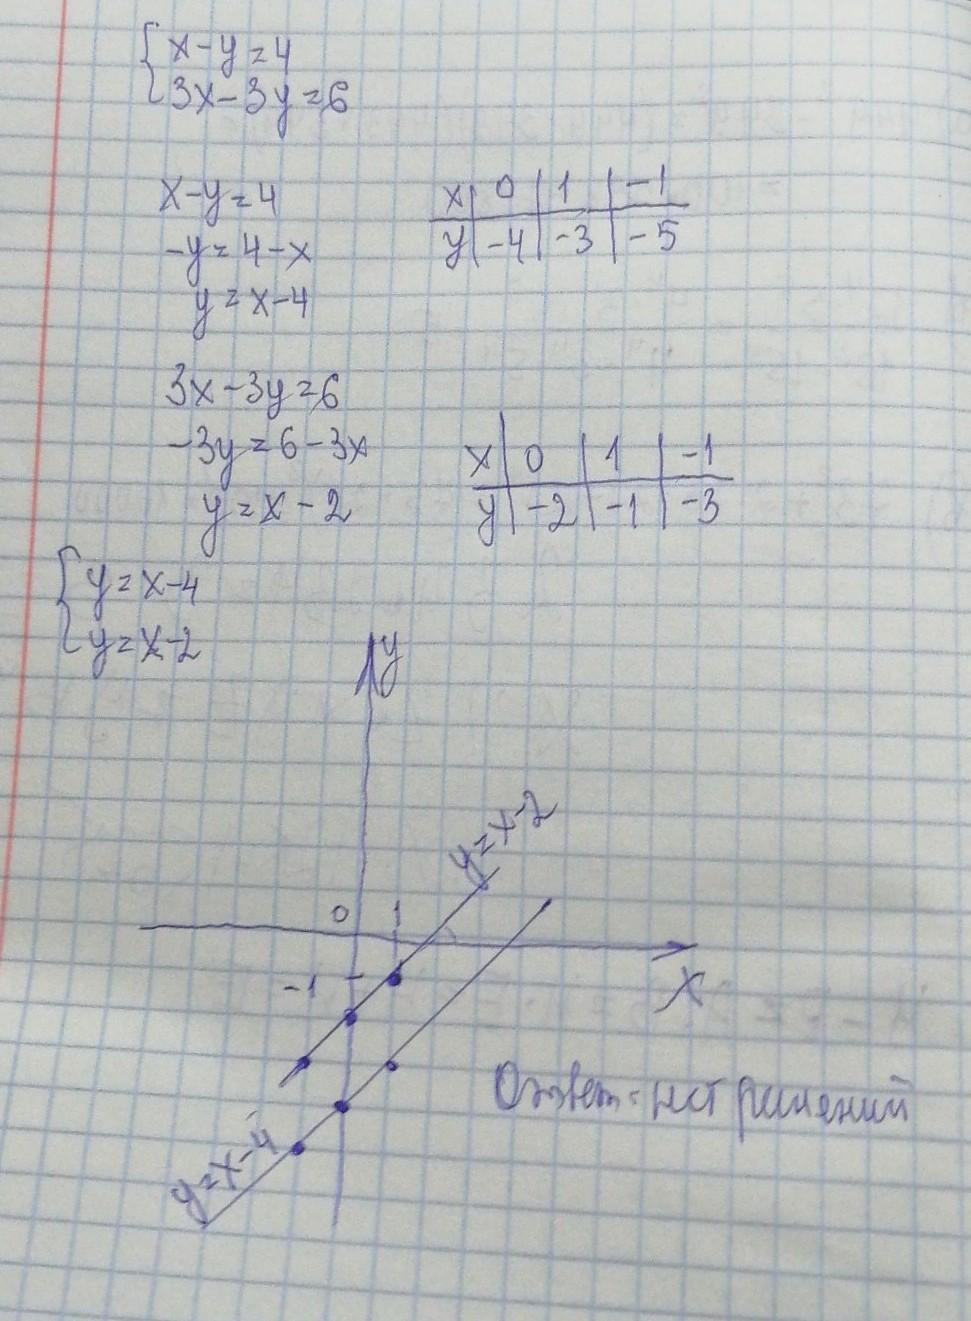 x-y=4
3x-3y=6
x-y=4
-y=4-x
y=x-4
x 0 1 -1
y -4 -3 -5
3x-3y=6
-3y=6-3x
y=x-2
x 0 1 -1
y -2 -1 -3
y=x-4
y=x-2
y
y=x-2
0 1
-1
x
y=x-4
Ответ: нет решений